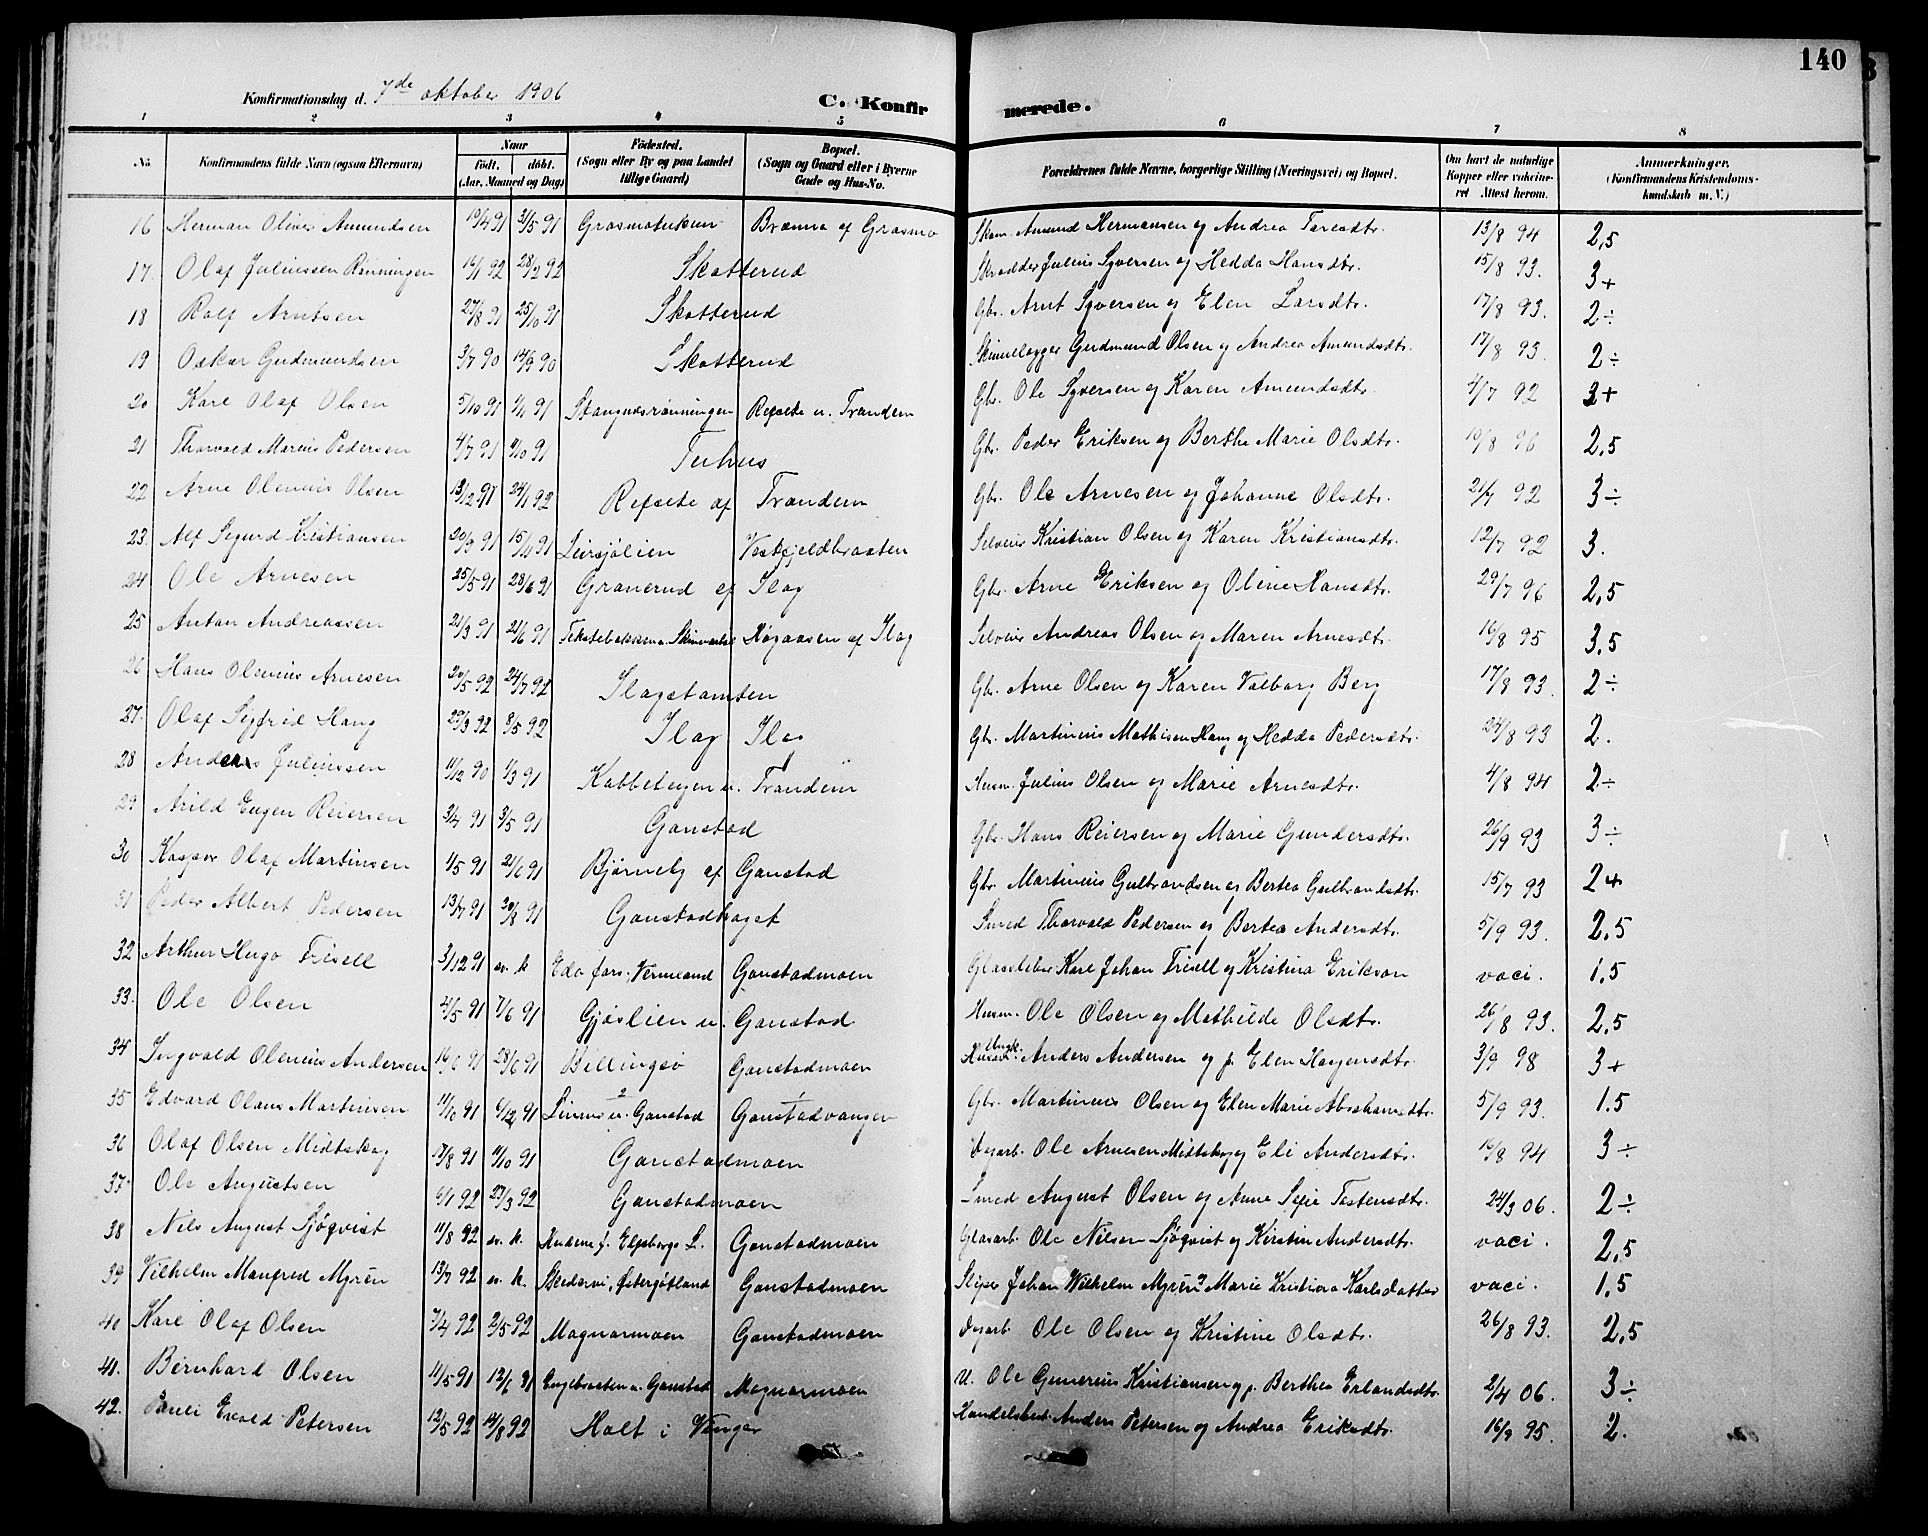 140
Konfirmationsdag d. 7de oktober 1906
C. Konfirmerede.
1 2 3 4 5 6 7 8
No Konfirmandens fulde Navn (ogsaa Efternavn) Naar født. døbt. (Aar, Maaned og Dag) Fødested. (Sogn eller By og paa Landet tillige Gaard) Bopæl. (Sogn og Gaard eller i Byerne Gade og Hus-No. Forældrenes fulde Navne, borgerlige Stilling (Næringsvei) og Bopæl. Om havt de naturlige Kopper eller vaksineret Attest herom. Anmærkninger. (Konfirmandens Kristendomskundskab m. V.)
16 Herman Oliver Amundsen 19/4 91 31/5 91 Brænna af Grasmo Amund Hermansen og Andrea 13/8 94 2,5
17. Olaf Juliussen Rønningen 16/1 92 28/2 92 Skotterud Skrædder Julius Syversen og Hedda Hansdtr. 15/8 93. 3+
18 Rolf Arntsen 27/8 91 25/10 91 Skotterud Gbr. Arnt Syversen og Elen Larsdtr. 17/8 93. 2÷
19 Oskar Gudmundsen 3/7 90 14/9 90 Skotterud Gudmund Olsen og Andrea Amundsdtr. 17/8 93. 2÷
20 Karl Olaf Olsen 5/10 91 1/11 91 Stangnæsrønningen Refsete u. Trandem Gbr. Ole Syversen og Karen Amundsdtr. 4/7 92 3+
21 Thorvald Marius Pedersen 4/7 91 4/10 91 Tuhus Gbr. Peder Eriksen og Berthe Marie Olsdtr. 10/8 96 2,5
22 Arne Olenius Olsen 13/12 91 24/1 92 Refsete af Trandem Gbr. Ole Arnesen og Johanne Olsdtr. 21/7 92 3÷
23 Alf Sigurd Kristiansen 20/3 91 15/4 91 Leirsjølien Vestfjeldbraaten Selveier Kristian Olsen og Karen Kristiansdtr. 12/7 92 3.
24 Ole Arnesen 25/5 91 28/6 91 Granerud af Slag Gbr. Arne Eriksen og Oline Hansdtr. 29/7 96 2,5
25 Anton Andreassen 21/3 91 21/6 91 af Slag Selveier Andreas Olsen og Maren Arnesdtr. 16/8 95 3,5
26 Hans Olenius Arnesen 20/5 92 24/7 92 Slagstomten Gbr. Arne Olsen og Karen Valborg Berg 17/8 93. 2÷
27. Olaf Sigfrid Haug 29/3 92 8/5 92 Slag Slag Gbr. Martinius Mathisen Haug og Hedda Pedersdtr. 24/8 93 2.
28 Anders Juliussen 11/12 90 1/3 91 Kabbeteigen u. Trandem Husm. Julius Olsen og Marie Arnesdtr. 4/8 94 2÷
29 Arild Eugen Reiersen 3/4 91 3/5 91 Gaustad Gbr. Hans Reiersen og Marie Gundersdtr. 26/9 93 3÷
30 Kasper Olaf Martinsen 1/5 91 21/6 91 Bjørneby af Gaustad Gbr. Martinius Gulbrandsen og Bertea Gulbrandsdtr. 15/7 93 2+
31 Peder Albert Pedersen 13/7 91 30/8 91 Gaustadhaget Smed Thorvald Pedersen og Bertea Andersdtr. 5/9 93. 2,5
32 Arthur Hugo Frisell 3/12 91 sv. k Eda fors. Vermland Gaustadmoen Karl Johan Frisell og Kristina Erikson vaci. 1,5
33. Ole Olsen 4/5 91 7/6 91 Gjøslien u. Gaustad Husm. Ole Olsen og Mathilde Olsdtr. 26/8 93. 2,5
34 Ingvald Olenius Andersen 16/6 91 28/6 91 Billingsø Gaustadmoen Ungk. Anders Andersen og p. Elen Haagensdtr. 3/9 98 3+
35 Edvard Olaus Martinsen 11/10 91 6/12 91 u. Gaustad Gaustadvangen Gbr. Martinius Olsen og Elen Marie Abrahamsdtr. 5/9 93. 1.5
36 Olaf Olsen Midtskog 17/8 91 11/10 91 Gaustadmoen Dagarb. Ole Arnesen Midtskog og Eli Andersdtr. 16/8 94 3÷
37 Ole Augustsen 6/1 92 27/3 92 Gaustadmoen Smed August Olsen og Anne Sofie Tostensdtr. 24/3 06. 2÷
38 Nils August Sjøqvist 11/8 92 sv. k. f. Elfsborgs L. Gaustadmoen Glasarb. Ole Nilsen Sjøqvist og Kirstin Andersdtr. vaci. 2,5
39 Vilhelm Manfred Myrén 13/7 92 sv. k. Skedevi, Østergøtland Gaustadmoen Sliper Johan Wilhelm Myrén Marie Kristina Karlsdotter vaci. 1,5
40 Karl Olaf Olsen 7/4 92 2/5 92 Magnormoen Gaustadmoen Dagarb. Ole Olsen og Kristine Olsdtr. 26/8 93. 2,5
41. Bernhard Olsen 11/5 91 12/6 91 Engebraaten u. Gaustad Magnormoen U. Ole Gunerius Kristiansen og p. Berthea Erlandsdtr. 2/4 06. 3÷
42. Evald Petersen 12/5 92 14/8 92 Holt i Vinger Handelsbest. Anders Petersen og Andrea Eriksdtr. 16/9 95. 2.